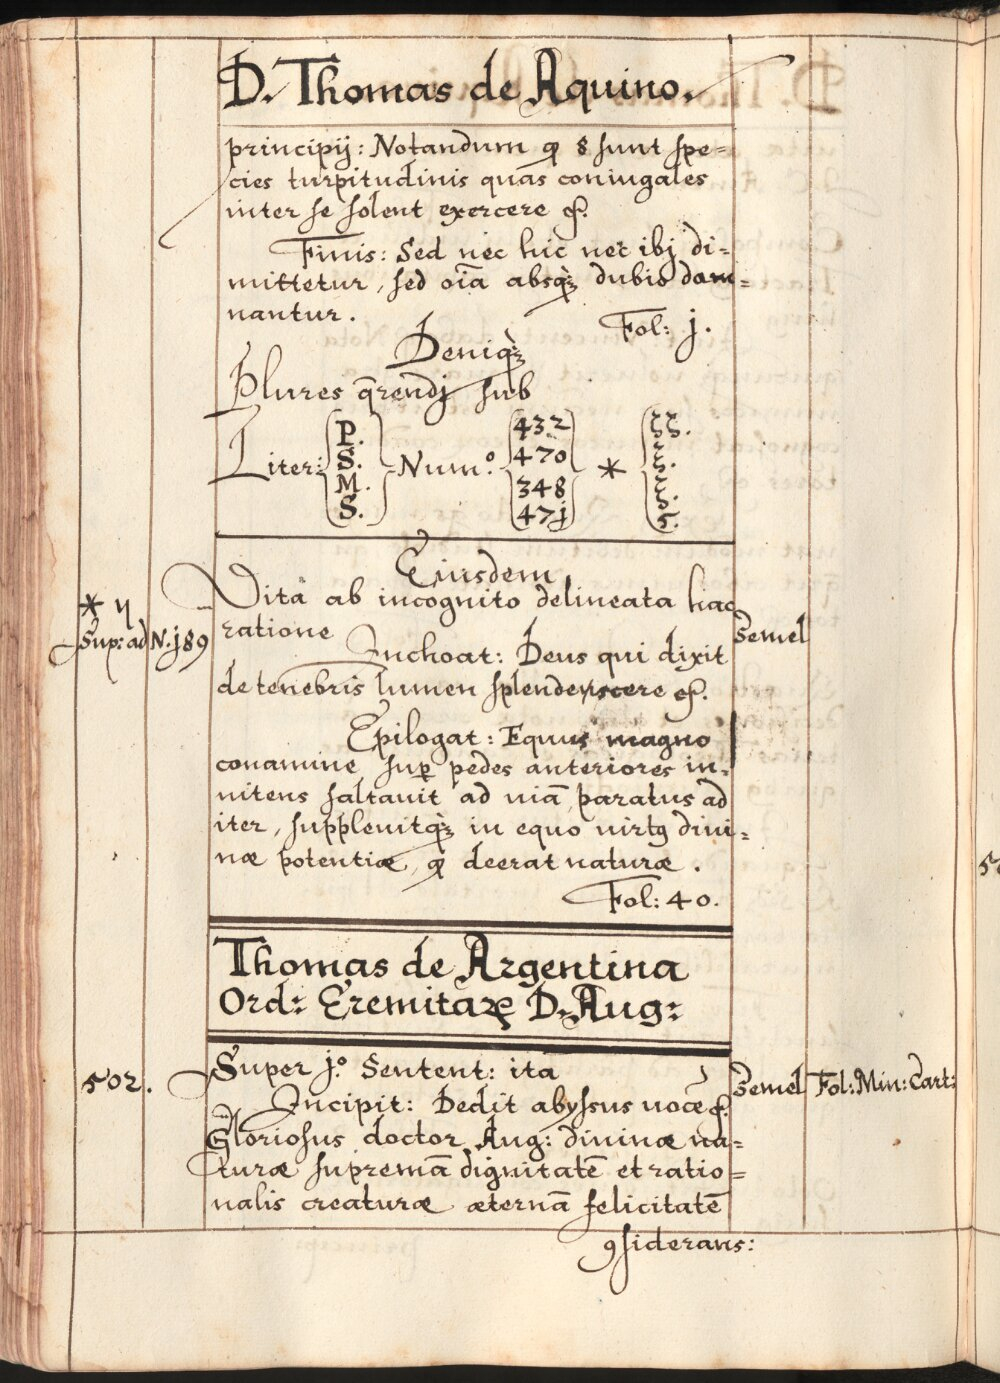 D. Thomas de Aquino.
principij: Notandum ꝙ 8 sunt spe=
cies turpitudinis quas coniugales
inter se solent exercere &.
Finis: Sed nec hic nec ibj di=
mittetur, sed oĩa absqꝫ dubio dam=
nantur.
Fol: j.
Deniqꝫ
Plures q̃rendj sub
Liter: P. S. M. S. Num.º 432 470 348 47j *
Eiusdem
Vita ab incognito delineata hac
* η
Sup: ad N. j89 ratione Semel
Inchoat: Deus qui dixit
de tenebris lumen splendescere &.
Epilogat: Equus magno
conamine suꝑ pedes anteriores in=
nitens saltauit ad uiā paratus ad
iter, suppleuitqꝫ in equo uirtꝰ diui=
næ potentiæ, ꝙ deerat naturæ.
Fol: 40.
Thomas de Argentina
Ord: Eremitaꝝ D. Aug:
502. Super j.º Sentent: ita Semel Fol: Min: Cart:
Incipit: Dedit abyssus uocē &.
Gloriosus doctor Aug: diuinæ na=
turæ supremā dignitatē et ratio=
nalis creaturæ æternā felicitatē
ꝯsiderans: